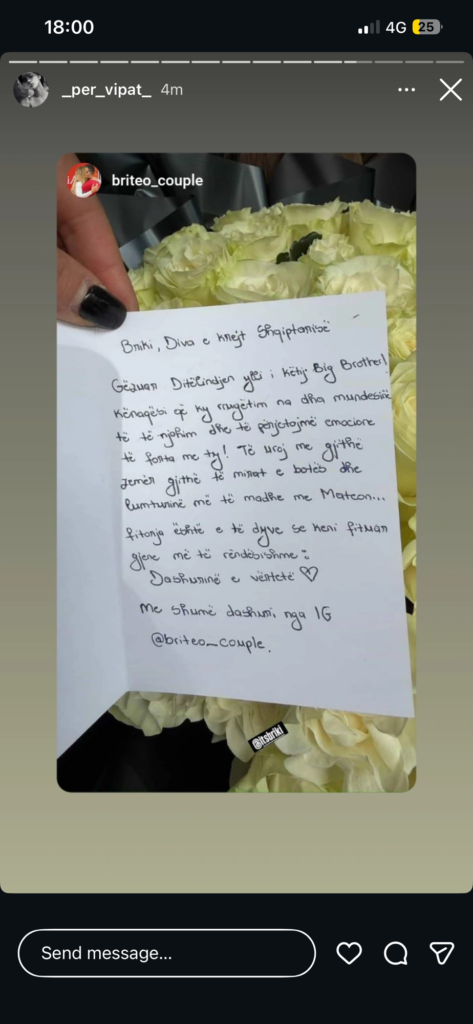 18:00
4G
25
_per_vipat_ 4m
briteo_couple
Briki, Diva e krejt Shqiptarisë
Gëzuar Ditëlindjen ylli i këtij Big Brother!
Kënaqësi që ky rrugëtim na dha mundësinë
të të njohim dhe të përjetojmë emocione
të forta me ty! Të uroj me gjithë
zemër gjithë të mirat e botës dhe
lumturinë më të madhe me Mateon...
fitorja është e të dyve se keni fituar
gjënë më të rëndësishme :
Dashurinë e vërtetë
Me shumë dashuri, nga IG
@briteo_couple.
@itsbriki
Send message...